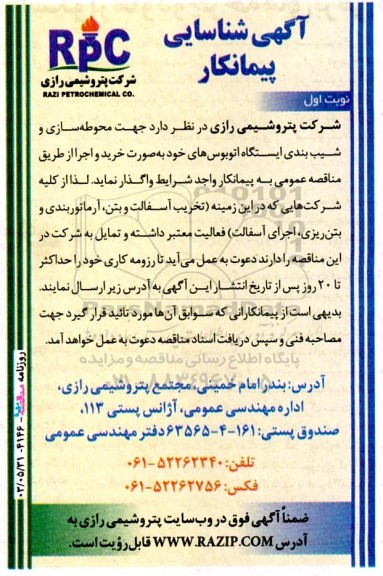 آگهی شناسایی
پیمانکار
RPC
شرکت پتروشیمی رازی
RAZI PETROCHEMICAL CO.
نوبت اول
شرکت پتروشیمی رازی در نظر دارد جهت محوطه‌سازی و
شیب بندی ایستگاه اتوبوس‌های خود به‌صورت خرید و اجرا از طریق
مناقصه عمومی به پیمانکار واجد شرایط واگذار نماید. لذا از کلیه
شرکت‌هایی که در این زمینه (تخریب آسفالت و بتن، آرماتوربندی و
بتن‌ریزی، اجرای آسفالت) فعالیت معتبر داشته و تمایل به شرکت در
این مناقصه را دارند دعوت به عمل می‌آید تا رزومه کاری خود را حداکثر
تا ۲۰ روز پس از تاریخ انتشار این آگهی به آدرس زیر ارسال نمایند.
بدیهی است از پیمانکارانی که سوابق آن‌ها مورد تائید قرار گیرد جهت
مصاحبه فنی و سپس دریافت اسناد مناقصه دعوت به عمل خواهد آمد.
پایگاه اطلاع رسانی مناقصه و مزایده
آدرس: بندر امام خمینی، مجتمع پتروشیمی رازی،
اداره مهندسی عمومی، آژانس پستی ۱۱۳،
صندوق پستی: ۱۶۱-۴-۶۳۵۶۵ دفتر مهندسی عمومی
تلفن: ۵۲۲۶۲۳۴۰-۰۶۱
فکس: ۵۲۲۶۲۷۵۶-۰۶۱
ضمناً آگهی فوق در وب‌سایت پتروشیمی رازی به
آدرس WWW.RAZIP.COM قابل رؤیت است.
روزنامه مناقصه - ۴۱۴۶ - ۰۳/۰۵/۳۱